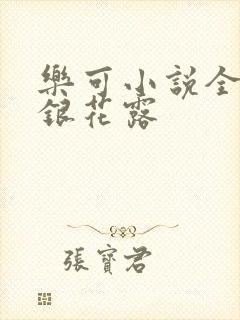 樂可小説全
銀花露
張寶君